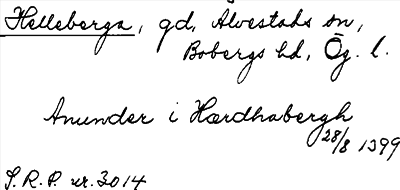 Helleberga, gd, Alvestads sn,
Bobergs hd, Ög. l.
Anunder i Hærdhabergh
28/8 1399
S.R.P. nr. 3014